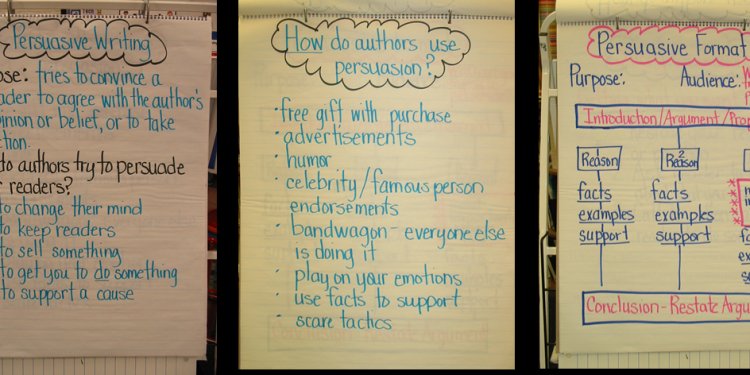 Persuasive Writing
ose: tries to convince a
ader to agree with the author's
inion or belief, or to take
tion.
to authors try to persuade
r readers?
to change their mind
to keep readers
to sell something
to get you to do something
to support a cause
How do authors use
persuasion?
· free gift with purchase
· advertisements
· humor
· celebrity/famous person
endorsements
· bandwagon - everyone else
is doing it
· play on your emotions
· use facts to support
· scare tactics
Persuasive Format
Purpose: Audience:
Introduction/Argument/Pro
1 Reason
2 Reason
facts
examples
support
facts
examples
support
Conclusion - Restate Argu